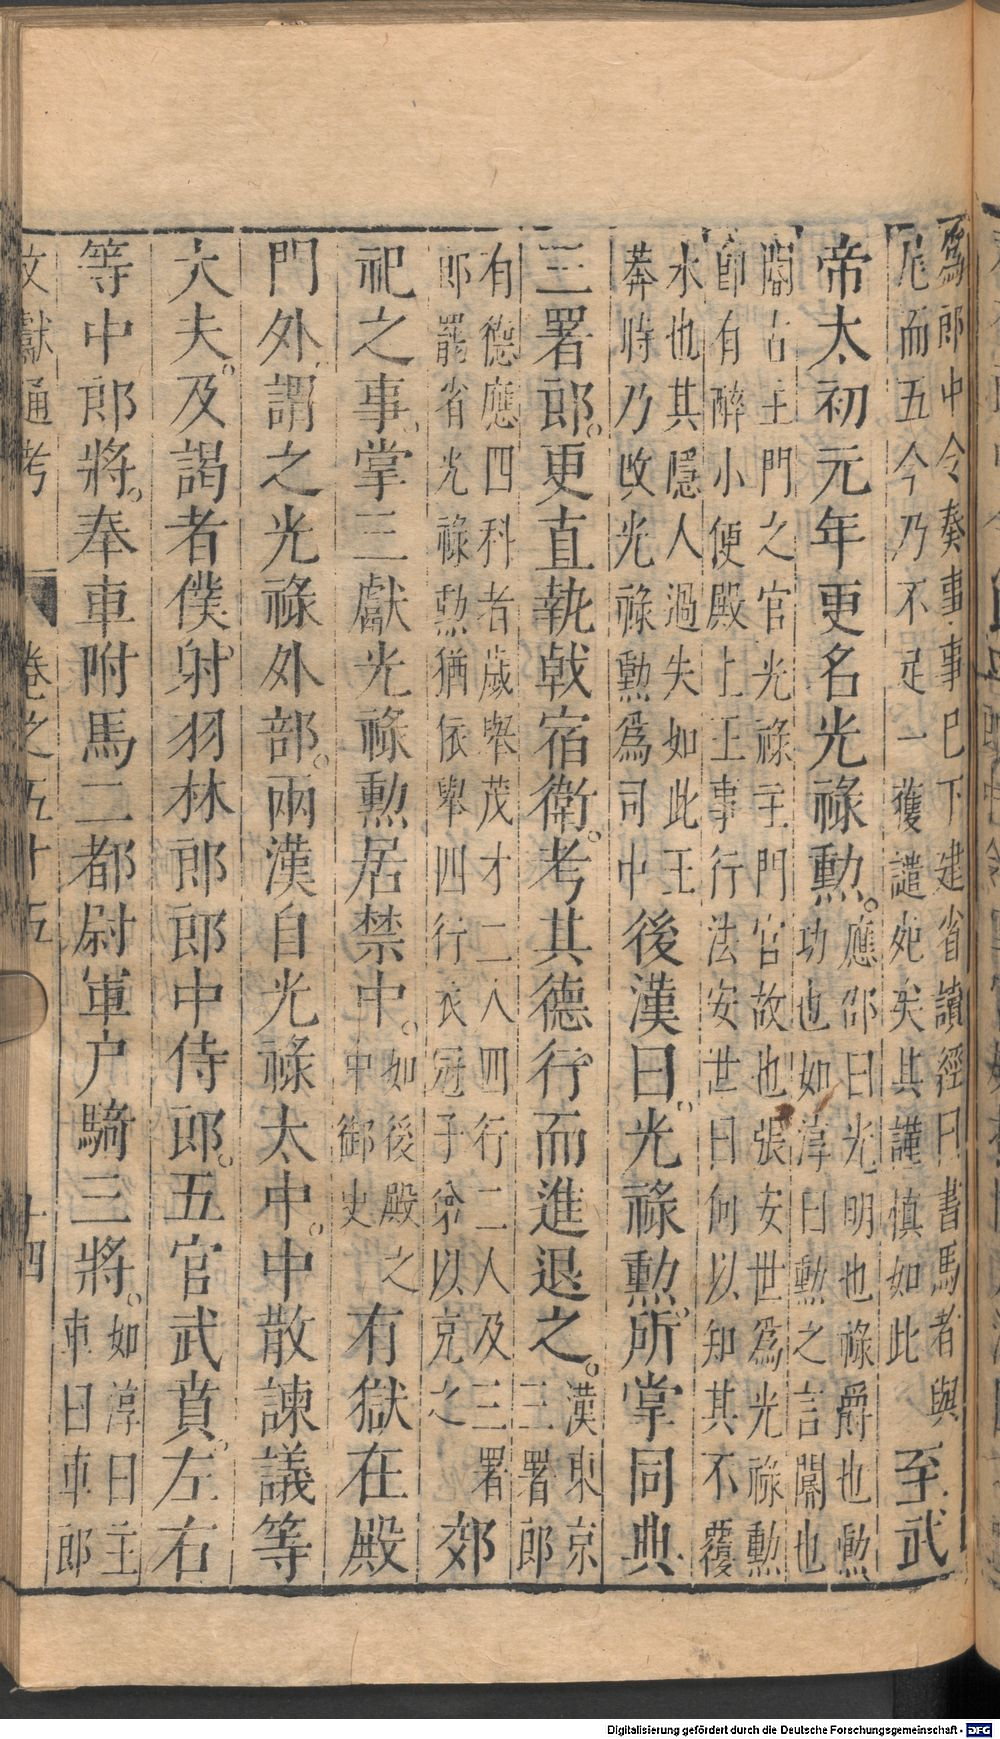 爲郎中令奏事事巳下建省讀經曰書馬者與
尾而五今乃不足一獲譴死矣其謹慎如此
至武
帝太初元年更名光祿勲
應邵曰光明也祿爵也勲
功也如淳曰勲之言閽也
閽古主門之官光祿主門官故也張安世爲光祿勲
郎有醉小便殿上主事行法安世曰何以知其不覆
水也其隱人過失如此王
莽時乃改光祿勲爲司中
後漢曰光祿勲所掌同典
三署郎更直執戟宿衛考其德行而進退之
漢東京
三署郎
有德應四科者歲舉茂才二人四行二人及三署
郎罷省光祿勲猶依舉四行衣冠子弟以充之
郊
祀之事掌三獻光祿勲居禁中
如後殿之
中御史
有獄在殿
門外謂之光祿外部兩漢自光祿太中中散諫議等
大夫及謁者僕射羽林郎郎中侍郎五官武賁左右
等中郎將奉車附馬二都尉軍户騎三將
如淳曰主
車曰車郎
文獻通考 卷之五十五 十四
Digitalisierung gefördert durch die Deutsche Forschungsgemeinschaft - DFG